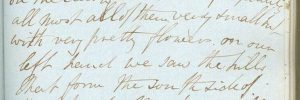 on the
all most all of them very small but
with very pretty flowers. on our
left hand we saw the hills
that form the south side of